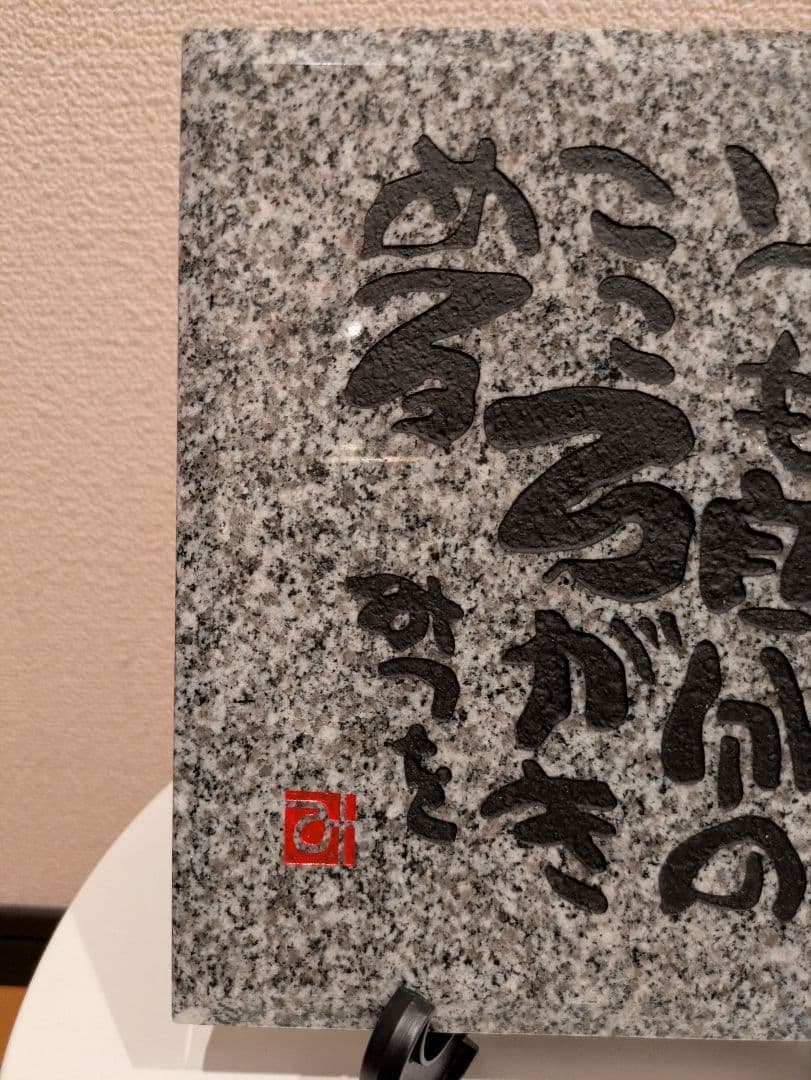 いつも自分の
こころがき
める
みつを